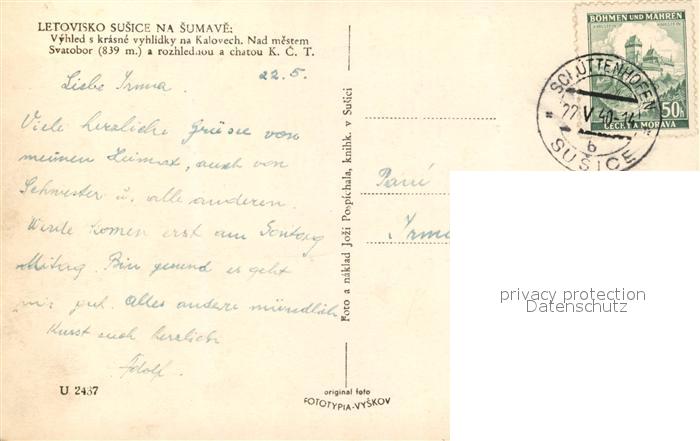 LETOVISKO SUŠICE NA ŠUMAVĚ:
Výhled s krásné vyhlídky na Kalovech. Nad městem
Svatobor (839 m.) a rozhlednou a chatou K. Č. T.
22.5.
Liebe Irma.
Viele herzliche Grüsse von
meiner Heimat, auch von
Schwester u. alle anderen.
Werde komen erst am Sontag
Mitag. Bin gesund es geht
mir gut. Alles andere mündlich
Kusst euch herzlich
Adolf.
U 2437
Foto a náklad Joži Pospíchala, knihk. v Sušici
original foto
FOTOTYPIA-VYŠKOV
BÖHMEN UND MÄHREN
50h
ČECHY A MORAVA
SCHÜTTENHOFEN
22 V 40-14
b
SUŠICE
Paní
privacy protection
Datenschutz